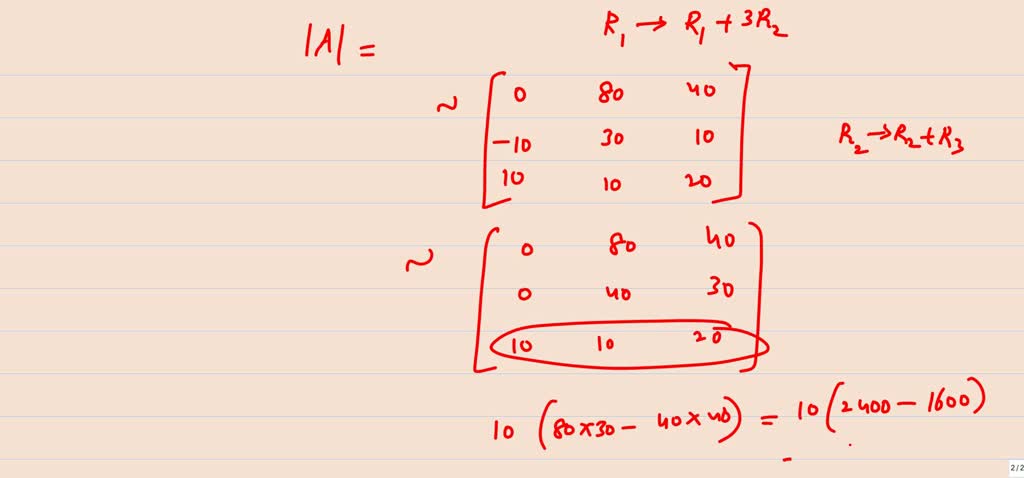 R₁ → R₁ + 3R₂
|A| =
~ [ 0 80 40
-10 30 10
10 10 20 ]
R₂ → R₂ + R₃
~ [ 0 80 40
0 40 30
10 10 20 ]
10 (80×30 - 40×40) = 10 (2400 - 1600)
=
2/2